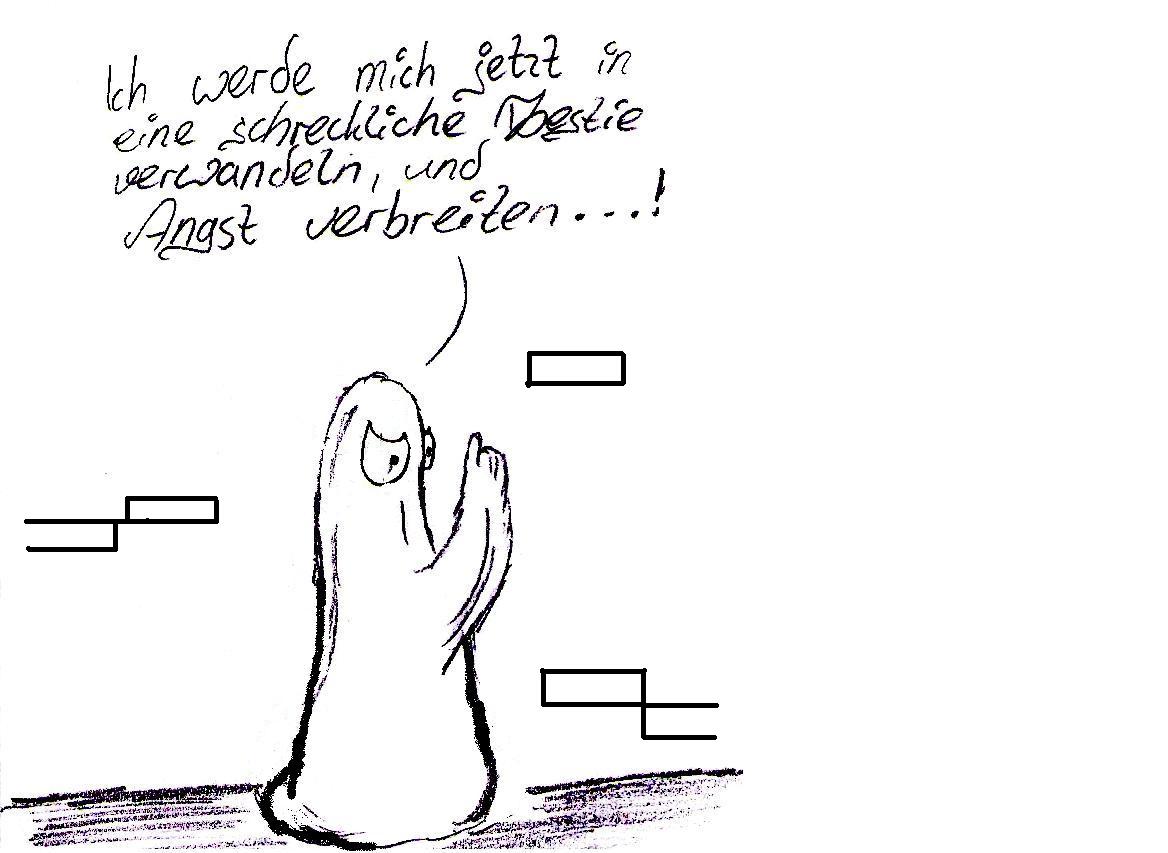 Ich werde mich jetzt in
eine schreckliche Bestie
verwandeln, und
Angst verbreiten...!